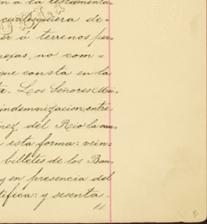 a la testamenta
cualesquiera de-
ser á terrenos per
nejas, no com-
que consta en la
Los Señores
indemnizacion entre
nez del Rio la can
esta forma: vein
billetes de los Ban
y en presencia del
tifica: y sesenta